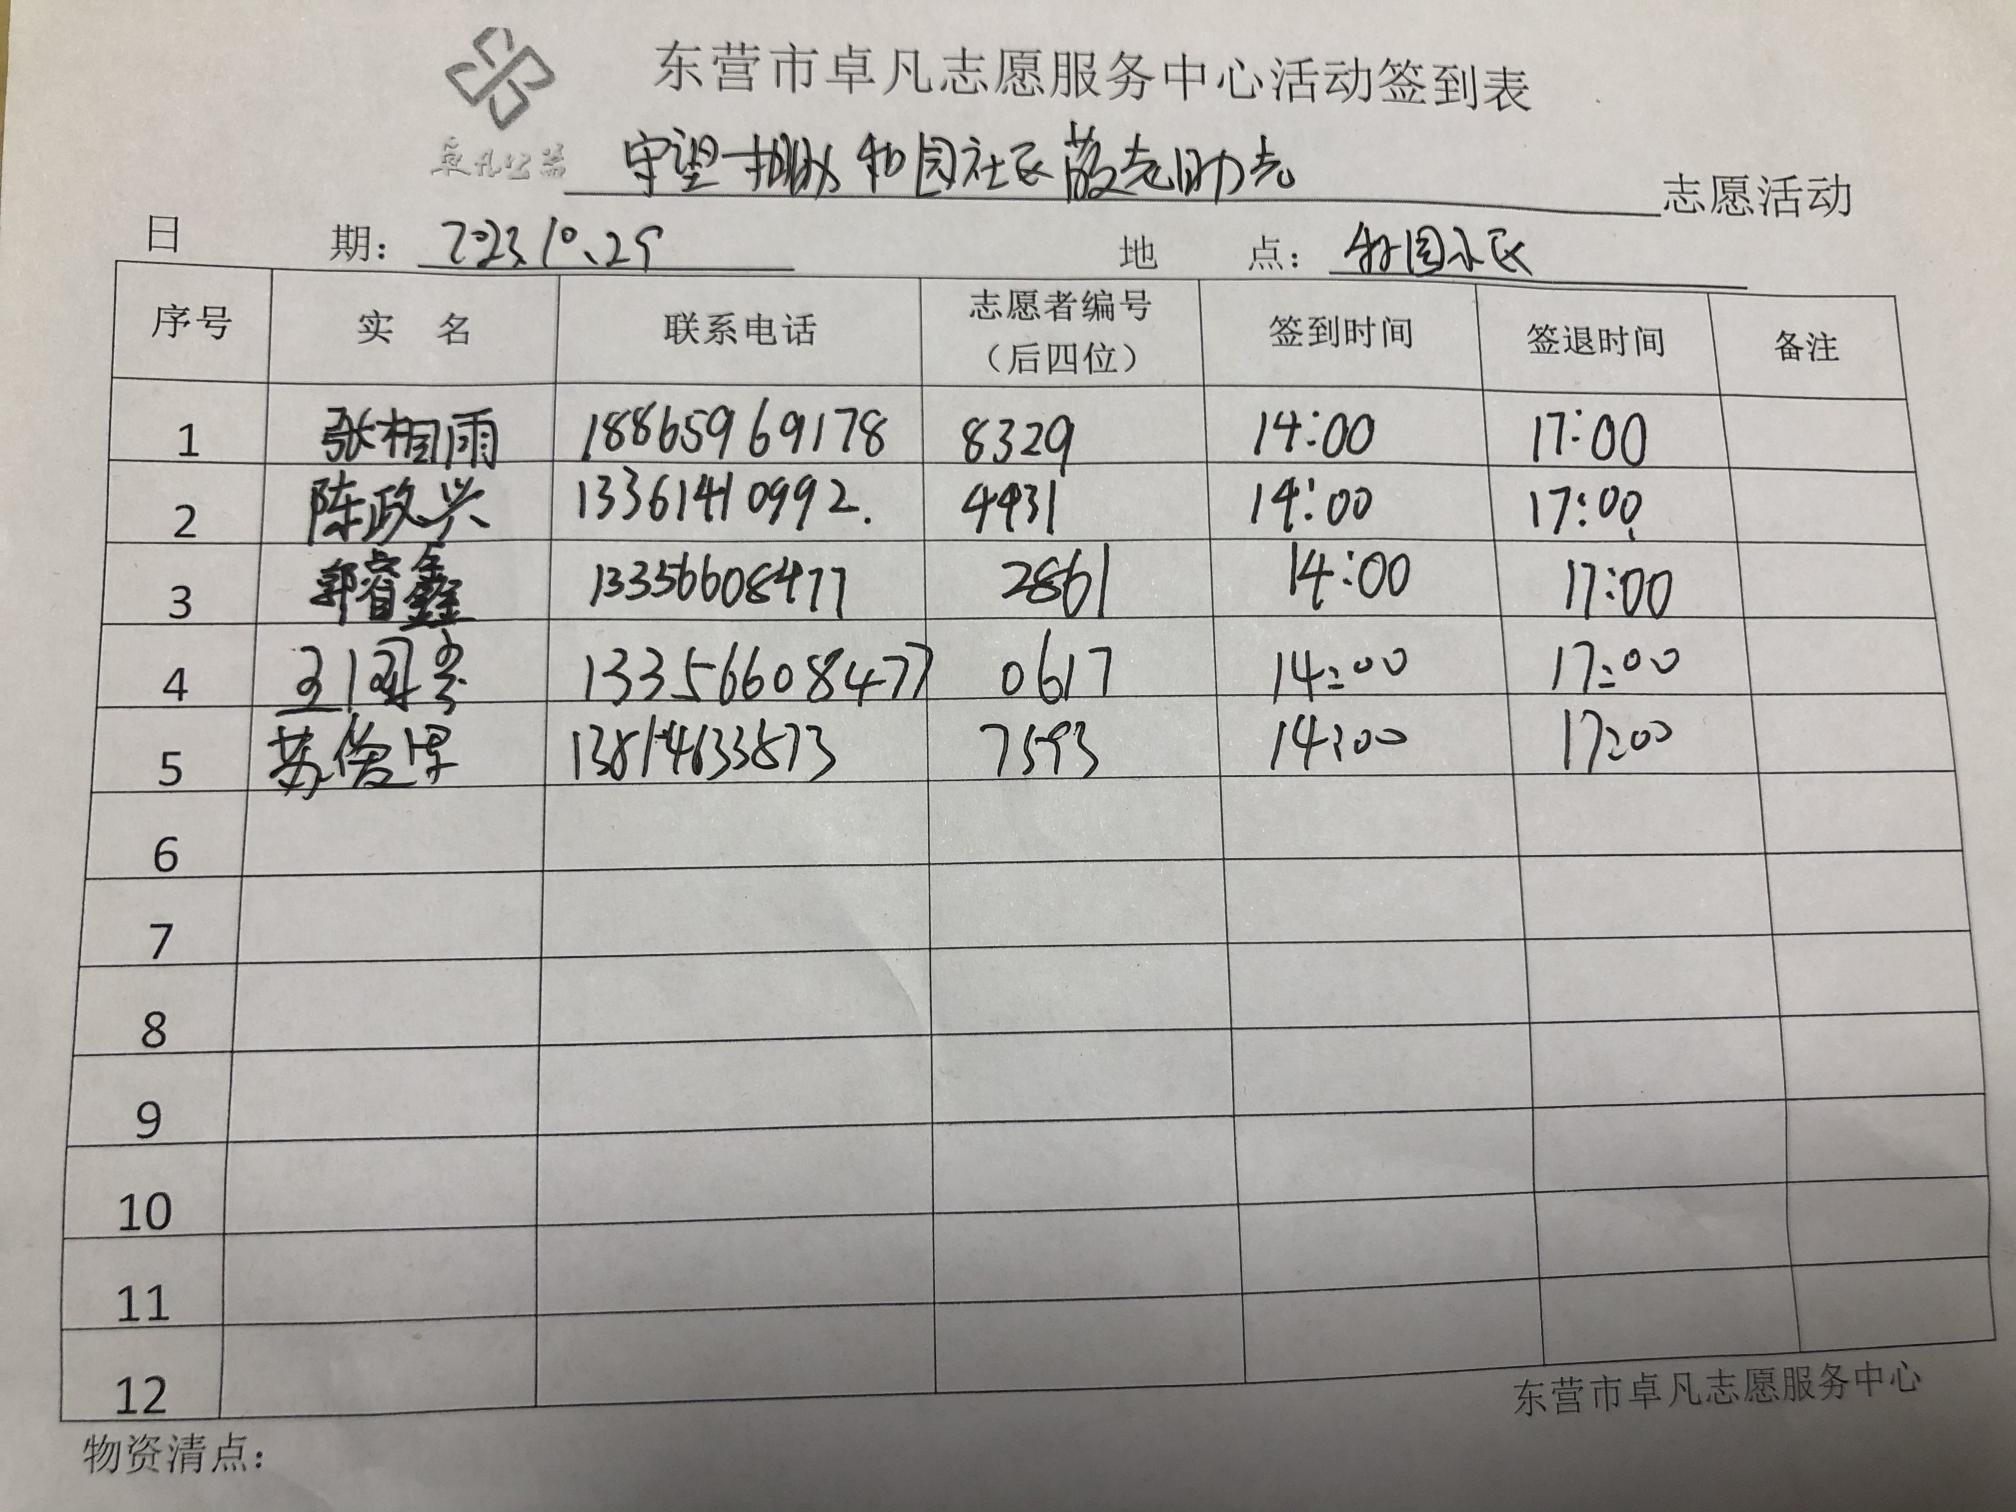 东营市卓凡志愿服务中心活动签到表
卓凡公益 守望 和园社区敬老助老 志愿活动
日 期： 2023.10.29 地 点： 和园小区
序号 实 名 联系电话 志愿者编号（后四位） 签到时间 签退时间 备注
1 张相雨 18865969178 8329 14:00 17:00
2 陈政兴 13361410992. 4431 14:00 17:00
3 郭睿鑫 13356608477 2861 14:00 17:00
4 13356608477 0617 14:00 17:00
5 苏俊 13814633873 7593 14:00 17:00
6
7
8
9
10
11
12
东营市卓凡志愿服务中心
物资清点：